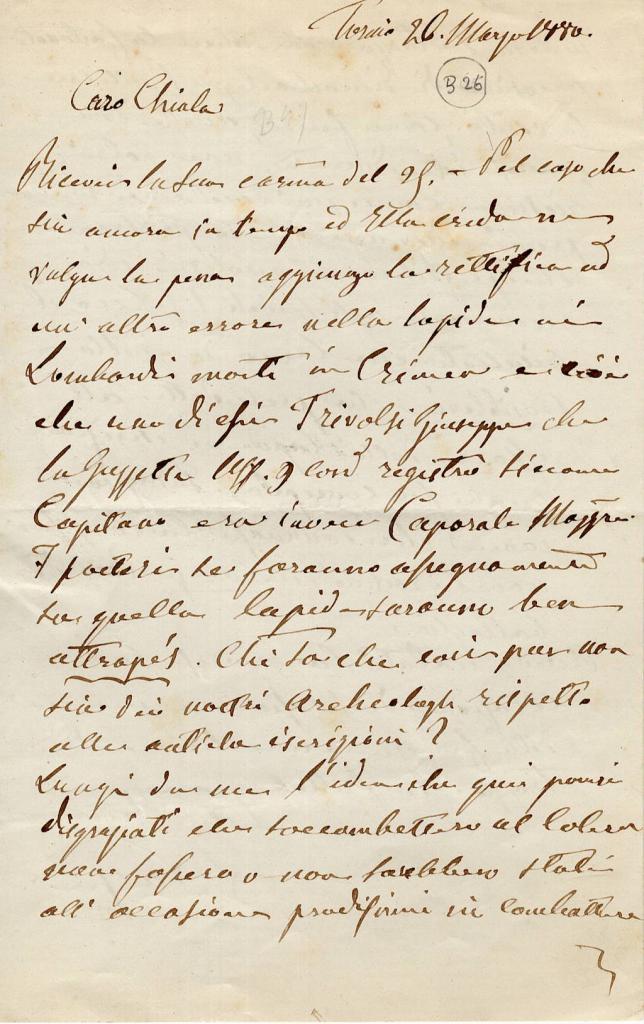 Torino 26. Marzo 1880.
B 26
Caro Chiala
B 4
Ricevei la Sua carma del 25. – Pel caso che
sia ancora in tempo ed Ella creda ne
valga la pena aggiungo la rettifica ad
un' altro errore nella lapide ai
Lombardi morti in Crimea e cioè
che uno di essi Trivolsi Giuseppe che
la Gazzetta Uff. 9 così registrò siccome
Capitano era invece Caporale Maggre.
I posteri se faranno assegnamento
su quella lapide saranno ben
attrapés. Chi sa che così pur non
sia dei nostri Archeologi rispetto
alle antiche iscrizioni?
Lungi da me l'idea che quei poveri
disgraziati che soccombettero al Colera
non fossero o non sarebbero stati
all' occasione prodissimi in combattere